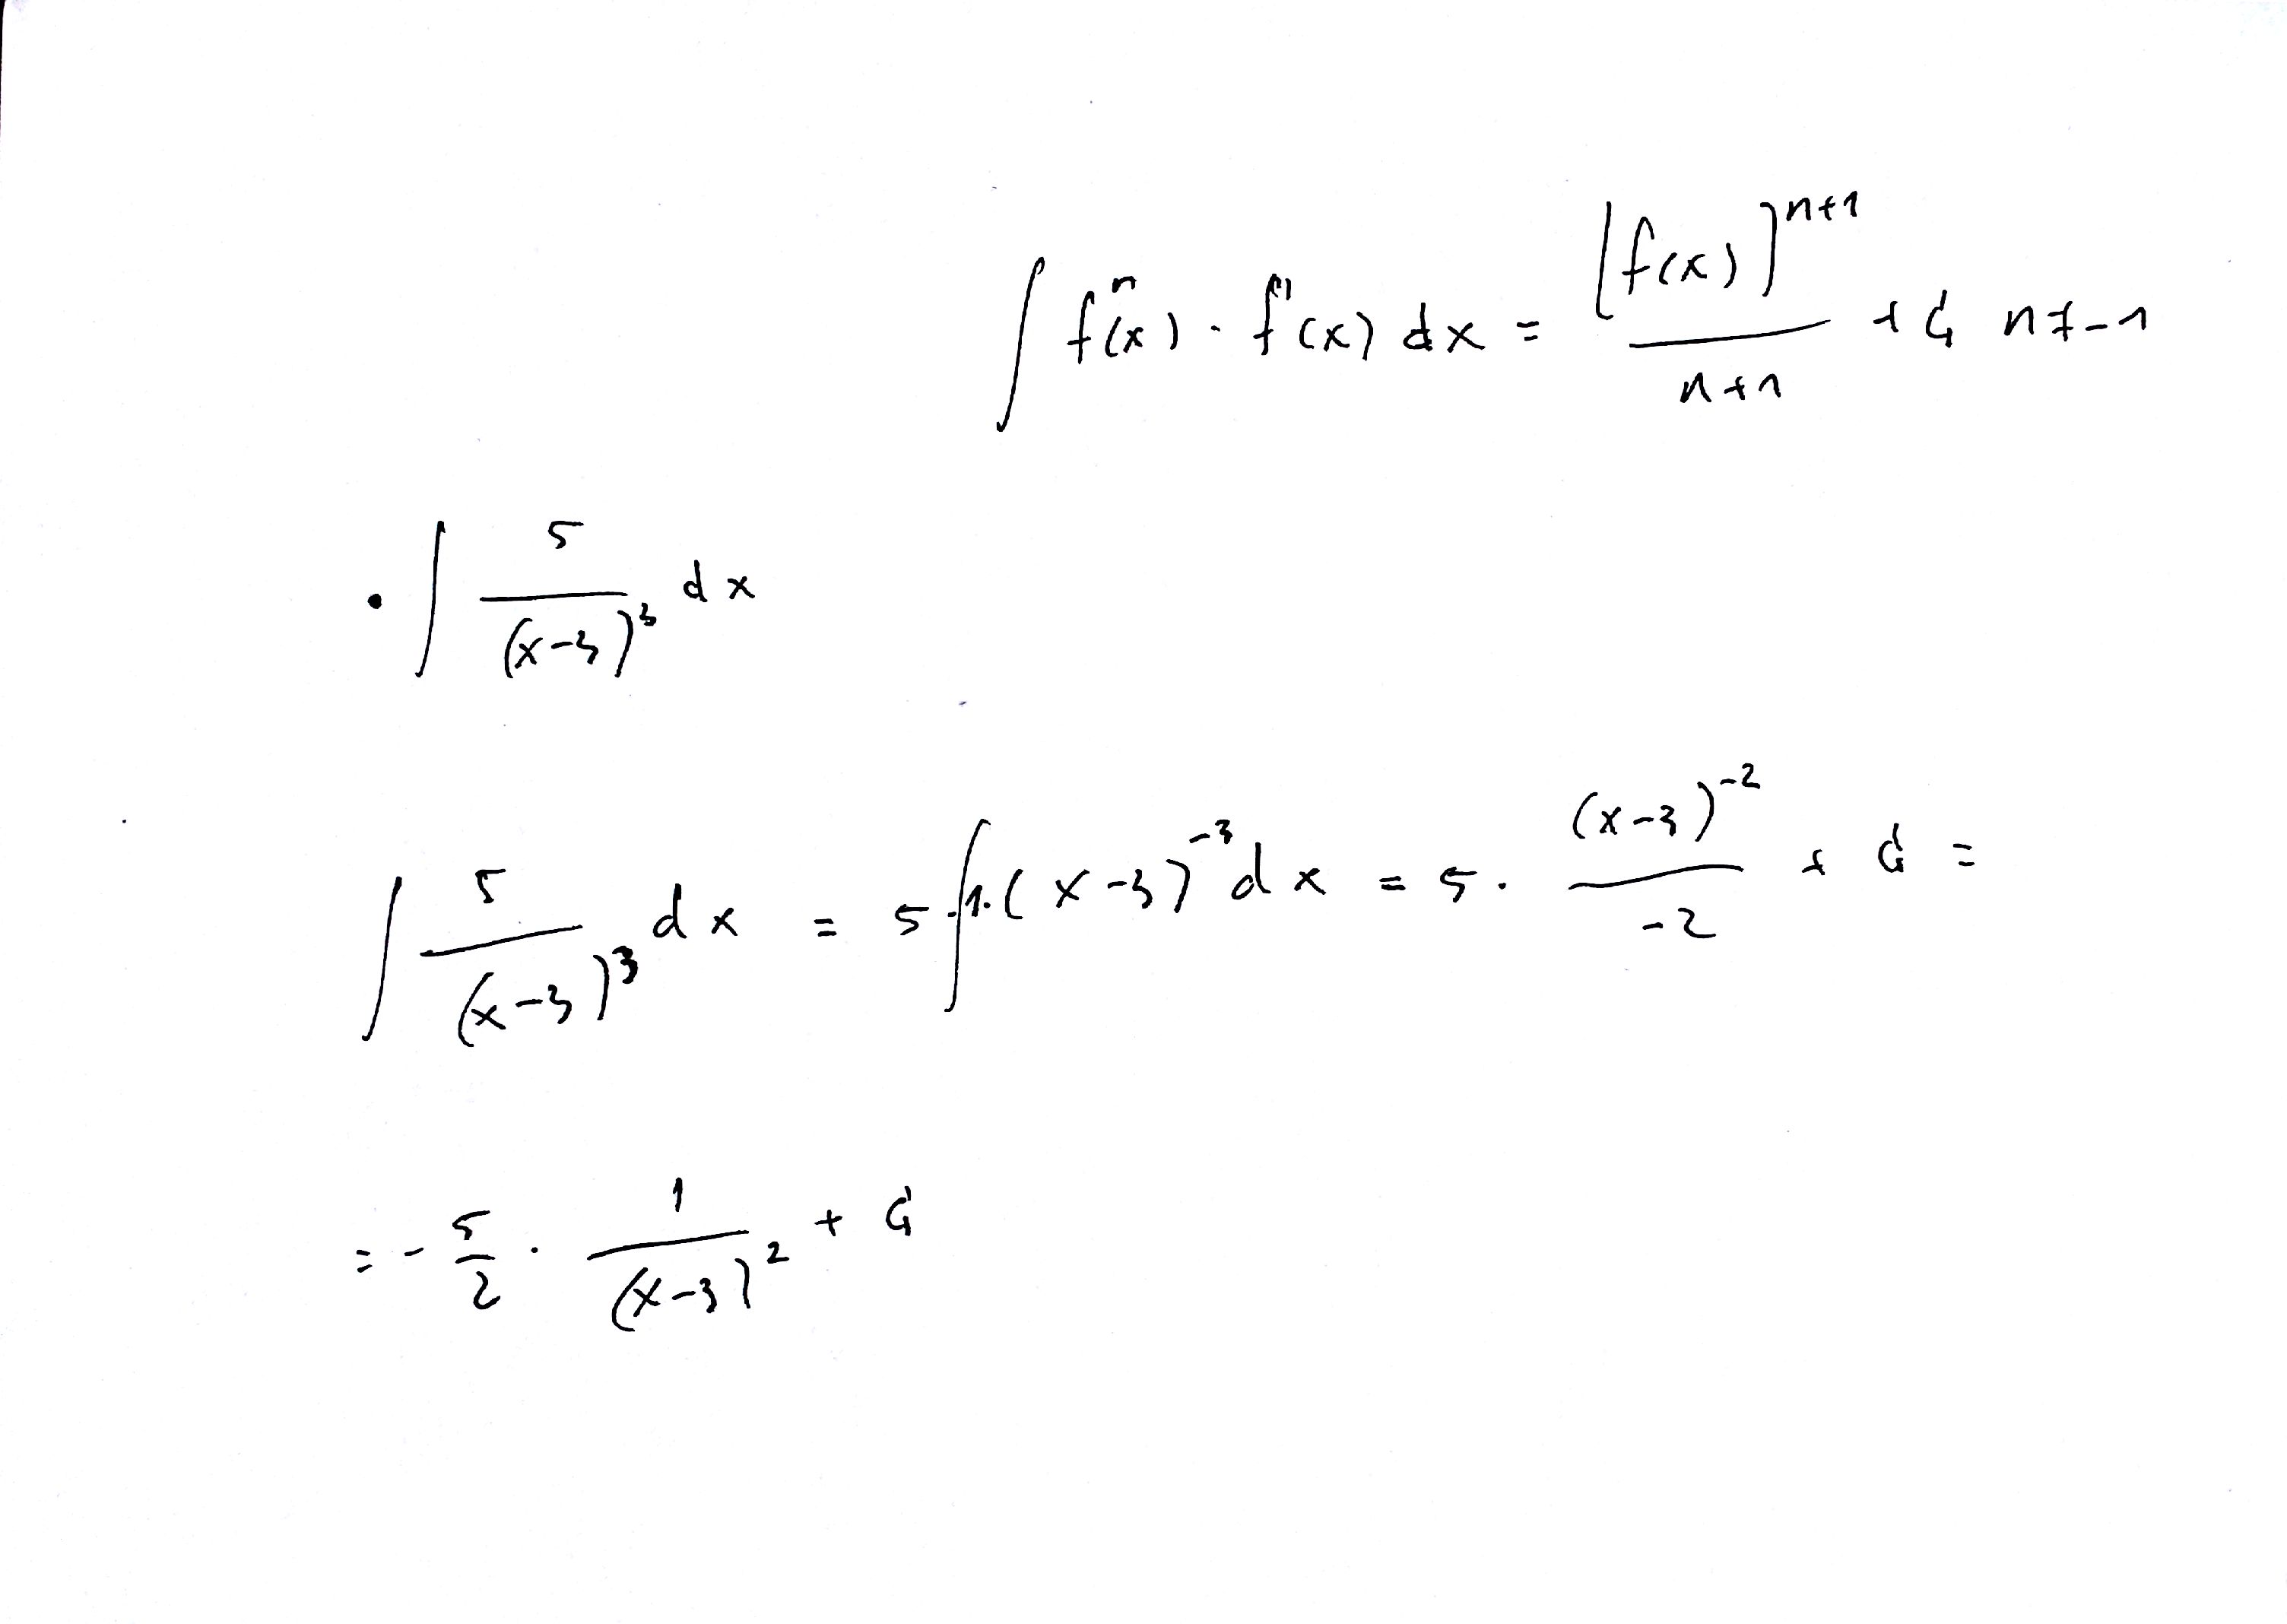 ∫ fⁿ(x) · f'(x) dx = [f(x)]ⁿ⁺¹ / n+1 + C n ≠ -1
• ∫ 5 / (x-3)³ dx
∫ 5 / (x-3)³ dx = 5 · ∫ 1·(x-3)⁻³ dx = 5 · (x-3)⁻² / -2 + C =
= - 5/2 · 1 / (x-3)² + C